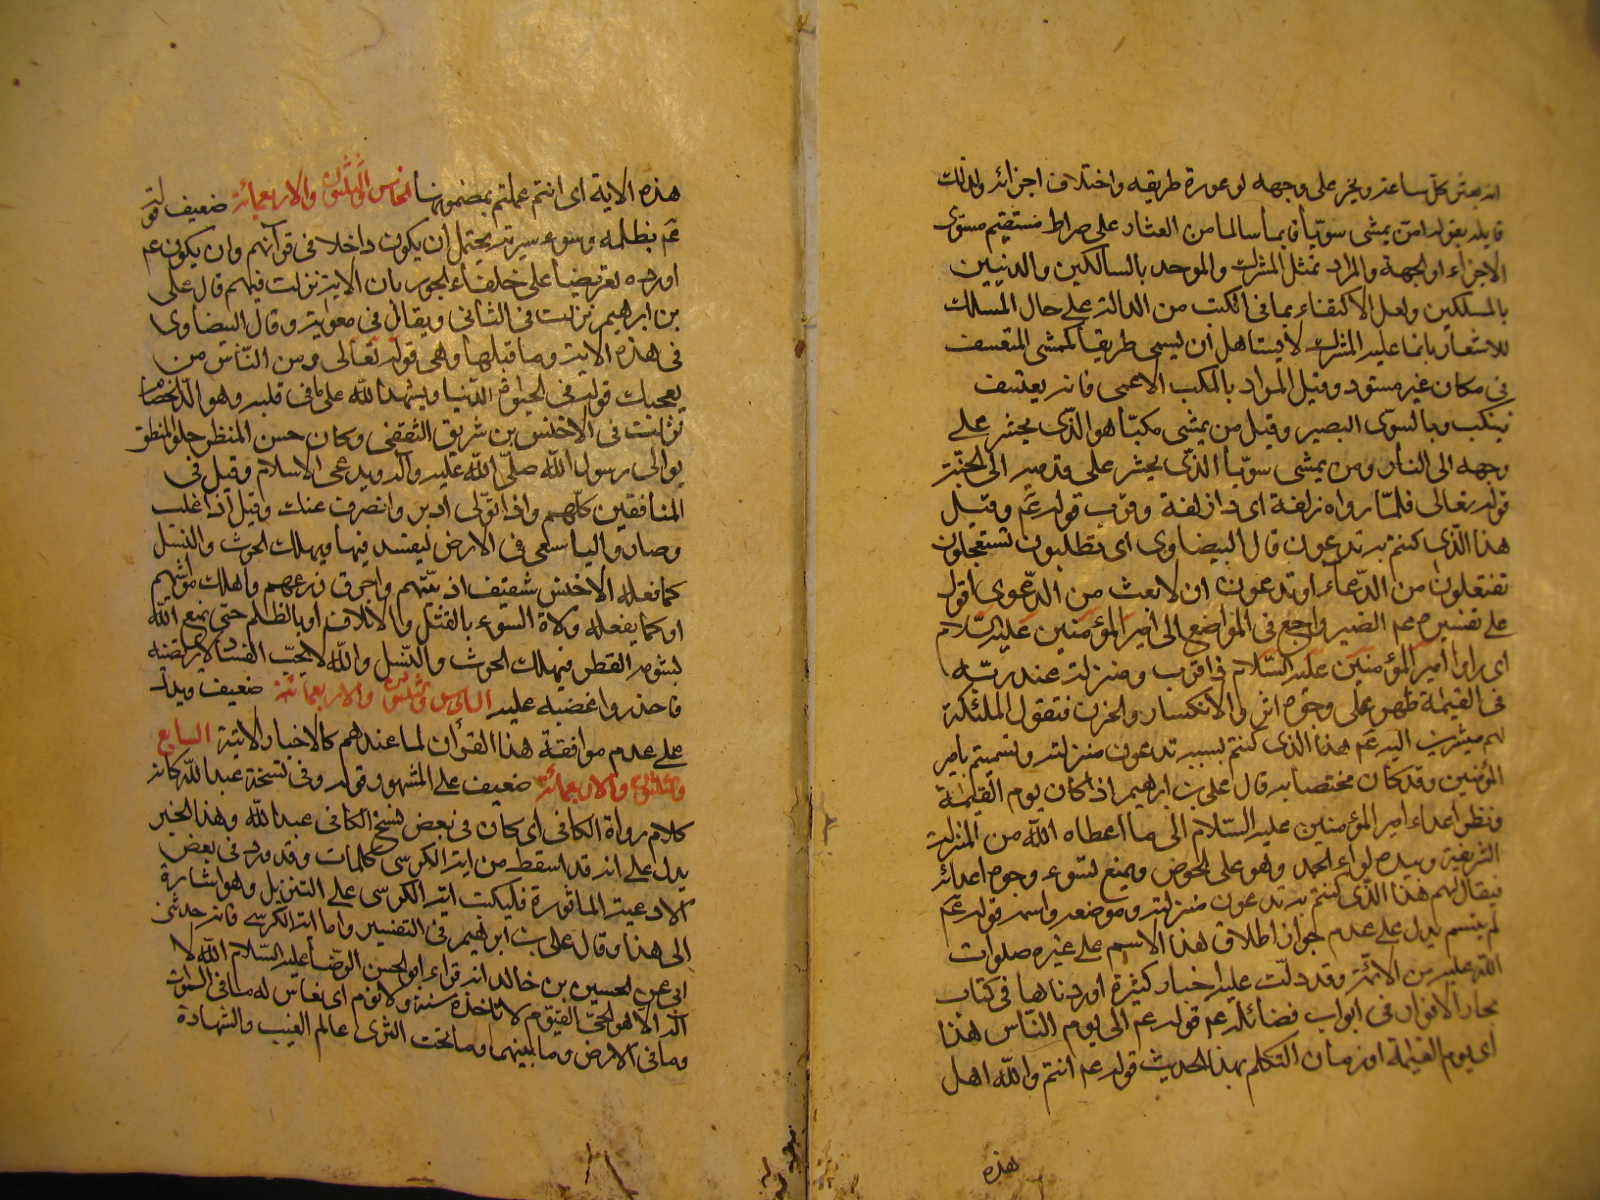 انه يعثر كل ساعة ويخر على وجهه لوعورة طريقه واختلاف اجزائه ولذلك
قابله بقوله امّن يمشى سويّا قايما سالما من العثار على صراط مستقيم مستوى
الاجزاء او الجهة والمراد تمثيل المشرك والموحد بالسالكين والدينين
بالمسلكين ولعل الاكتفاء بما فى الكب من الدلالة على حال المسلك
للاشعار بانّ ما عليه المشرك لا يستاهل ان يسمى طريقا كمشى المتعسف
فى مكان غير مستو وقيل المراد بالمكب الاعمى فانه يعتسف
فينكب وبالسوى البصير وقيل من يمشى مكبّا هو الذى يحشر على
وجهه الى النار ومن يمشى سويّا الذى يحشر على قدميه الى الجنّة
قوله تعالى فلمّا راوه زلفة اى ذا زلفة وقرب قوله عم وقيل
هذا الذى كنتم به تدعون قال البيضاوى اى تطلبون تستعجلون
تفتعلون من الدّعاء او تدعون ان لا بعث من الدّعوى اقول
على تفسيره عم الضمير راجع فى المواضع الى امير المؤمنين عليه السّلام
اى راوا امير المؤمنين عليه السّلام فى اقرب ومنزلة عند ربّه
فى القيمة ظهر على وجوههم اثر والانكسار والحزن فتقول الملئكة
لهم مشيرين اليه عم هذا الذى كنتم بسببه تدعون منزلته وتسميتم بامير
المؤمنين وقد كان مختصا به قال على بن ابرهيم اذا كان يوم القيمة
ونظر اعداء امير المؤمنين عليه السّلام الى ما اعطاه اللّه من المنزلة
الشريفة وبيده لواء الحمد وهو على الحوض ويمنع تسوء وجوه اعدائه
فيقال لهم هذا الذى كنتم به تدعون منزلته وموضعه واسمه قوله عم
لم يتسم يدل على عدم جواز اطلاق هذا الاسم على غيره صلوات
اللّه عليه من الائمّة وقد دلّت عليه اخبار كثيرة اوردناها فى كتاب
بحار الانوار فى ابواب فضائله عم قوله عم الى يوم النّاس هذا
اى يوم القيمة او زمان التكلم بهذا الحديث قوله عم انتم واللّه اهل
هذه
هذه الاية اى انتم عملتم بمضمونها الخامس والثلثون والاربعمائة ضعيف قوله
عم بظلمه وسوء سيرته يحتمل ان يكون داخلا فى قرآنهم وان يكون عم
اورده تعريضا على خلفاء الجور بان الاية نزلت فيهم قال على
بن ابراهيم نزلت فى الثانى ويقال فى معوية وقال البيضاوى
فى هذه الاية وما قبلها وهى قوله تعالى ومن النّاس من
يعجبك قوله فى الحيوة الدّنيا ويشهد اللّه على ما فى قلبه وهو الدّ الخصام
نزلت فى الاخنس بن شريق الثقفى وكان حسن المنظر حلو المنطق
يوالى رسول اللّه صلّى اللّه عليه وآله ويدعى الاسلام وقيل فى
المنافقين كلّهم واذا تولّى ادبر وانصرف عنك وقيل اذا غلب
وصار واليا سعى فى الارض ليفسد فيها ويهلك الحرث والنسل
كما فعله الاخنس بثقيف اذ بيّتهم واحرق زرعهم واهلك مواشيهم
او كما يفعله ولاة السوء بالقتل والاتلاف او بالظلم حتى يمنع اللّه
بشومه القطر فيهلك الحرث والنّسل واللّه لا يحبّ الفساد لا يرتضيه
فاحذروا غضبه عليه السادس وثلثون والاربعمائة ضعيف ويدل
على عدم موافقة هذا القرأن لما عندهم كالاخبار الاتية السابع
وثلثون والاربعمائة ضعيف على المشهور وقوله وفى نسخة عبد اللّه كانه
كلام رواة الكافى اى كان فى بعض نسخ الكافى عبد اللّه وهذا الخبر
يدل على انه قد اسقط من اية الكرسى كلمات وقد ورد فى بعض
الادعية الماثورة فليكتب اية الكرسى على التنزيل وهو اشارة
الى هذا وقال على بن ابرهيم فى التفسير واما اية الكرسى فانه حدثنى
ابى عن الحسين بن خالد انه قراء ابو الحسن الرضا عليه السّلام اللّه لا
اله الا هو الحىّ القيّوم لا تاخذه سنة ولا نوم اى نعاس له ما فى السّموات
وما فى الارض وما بينهما وما تحت الثرى عالم الغيب والشهادة